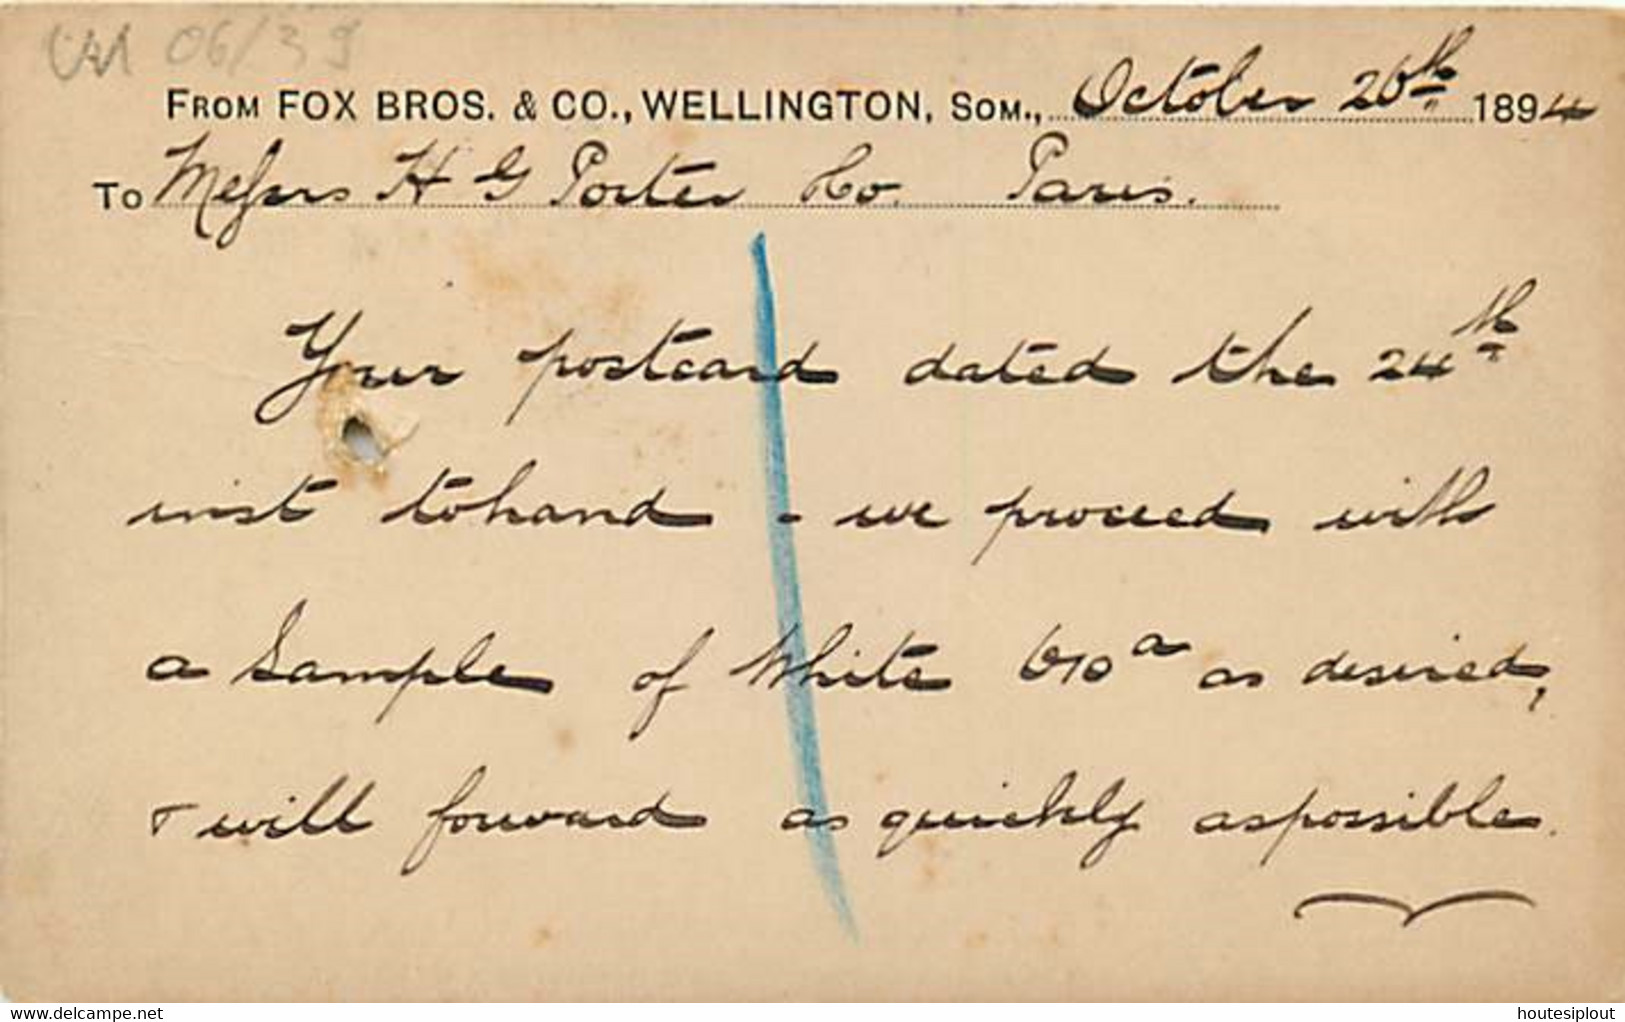 06/39
FROM FOX BROS. & CO., WELLINGTON, SOM., October 26th 1894
To Messrs H G Porter Co. Paris.
Your postcard dated the 24th
inst tohand - we proceed with
a Sample of White 610a as desired,
& will forward as quickly aspossible.
delcampe.net
houtesiplout